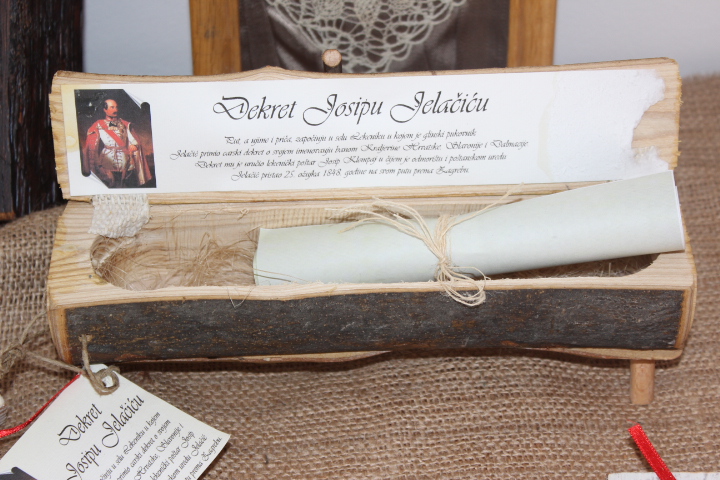 Dekret Josipu Jelačiću
Put, a ujime i priča, započinju u selu Lekeniku u kojem je glinski pukovnik
Jelačić primio carski dekret o svojem imenovanju banom Kraljevine Hrvatske, Slavonije i Dalmacije.
Dekret mu je uručio lekenički poštar Josip Klempaj u čijem je odmorištu i poštanskom uredu
Jelačić pristao 25. ožujka 1848. godine na svom putu prema Zagrebu.
Dekret
Josipu Jelačiću
u selu Lekeniku u kojem
carski dekret o svojem
Hrvatske, Slavonije i
lekenički poštar Josip
uredu Jelačić
prema Zagrebu